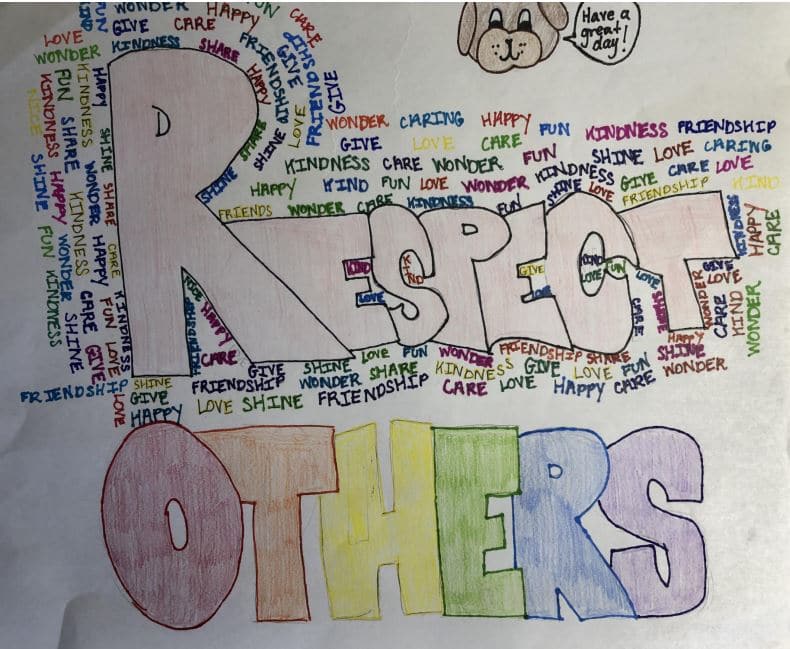 WONDER HAPPY FUN CARE
GIVE CARE
LOVE KINDNESS SHARE FRIENDSHIP GIVE FRIENDSHIP GIVE
WONDER HAPPY
Have a
great
day!
HAPPY
SHARE
SHINE LOVE
SHINE
WONDER CARING HAPPY FUN KINDNESS FRIENDSHIP
GIVE LOVE CARE SHINE LOVE CARING
KINDNESS CARE WONDER FUN KINDNESS GIVE CARE LOVE
HAPPY KIND FUN LOVE WONDER SHINE LOVE FRIENDSHIP KIND
FRIENDS WONDER CARE KINDNESS FUN
NICE
KINDNESS HAPPY WONDER SHINE
SHINE FUN KINDNESS
FUN SHARE KINDNESS CARE GIVE
KINDNESS WONDER HAPPY FUN LOVE
HAPPY SHINE SHARE CARE KINDNESS
RESPECT
KIND KIND GIVE KIND
LOVE LOVE LOVE FUN LOVE
KINDNESS HAPPY CARE
GIVE
LOVE
WONDER CARE KIND WONDER
CARE SHARE
NICE HAPPY
FRIENDSHIP CARE
HAPPY
GIVE SHINE LOVE FUN WONDER FRIENDSHIP SHARE SHINE
FRIENDSHIP SHINE FRIENDSHIP WONDER SHARE KINDNESS GIVE LOVE FUN WONDER
LOVE GIVE LOVE SHINE FRIENDSHIP CARE LOVE HAPPY CARE
HAPPY
OTHERS